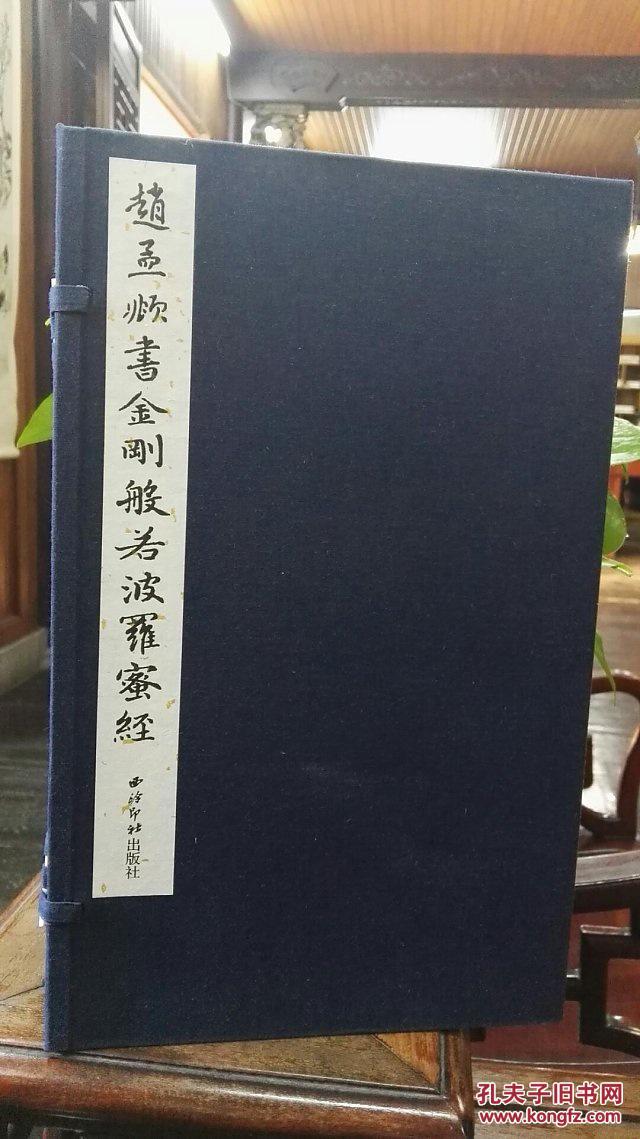 趙孟頫書金剛般若波羅蜜經
西泠印社出版社
孔夫子旧书网
www.kongfz.com